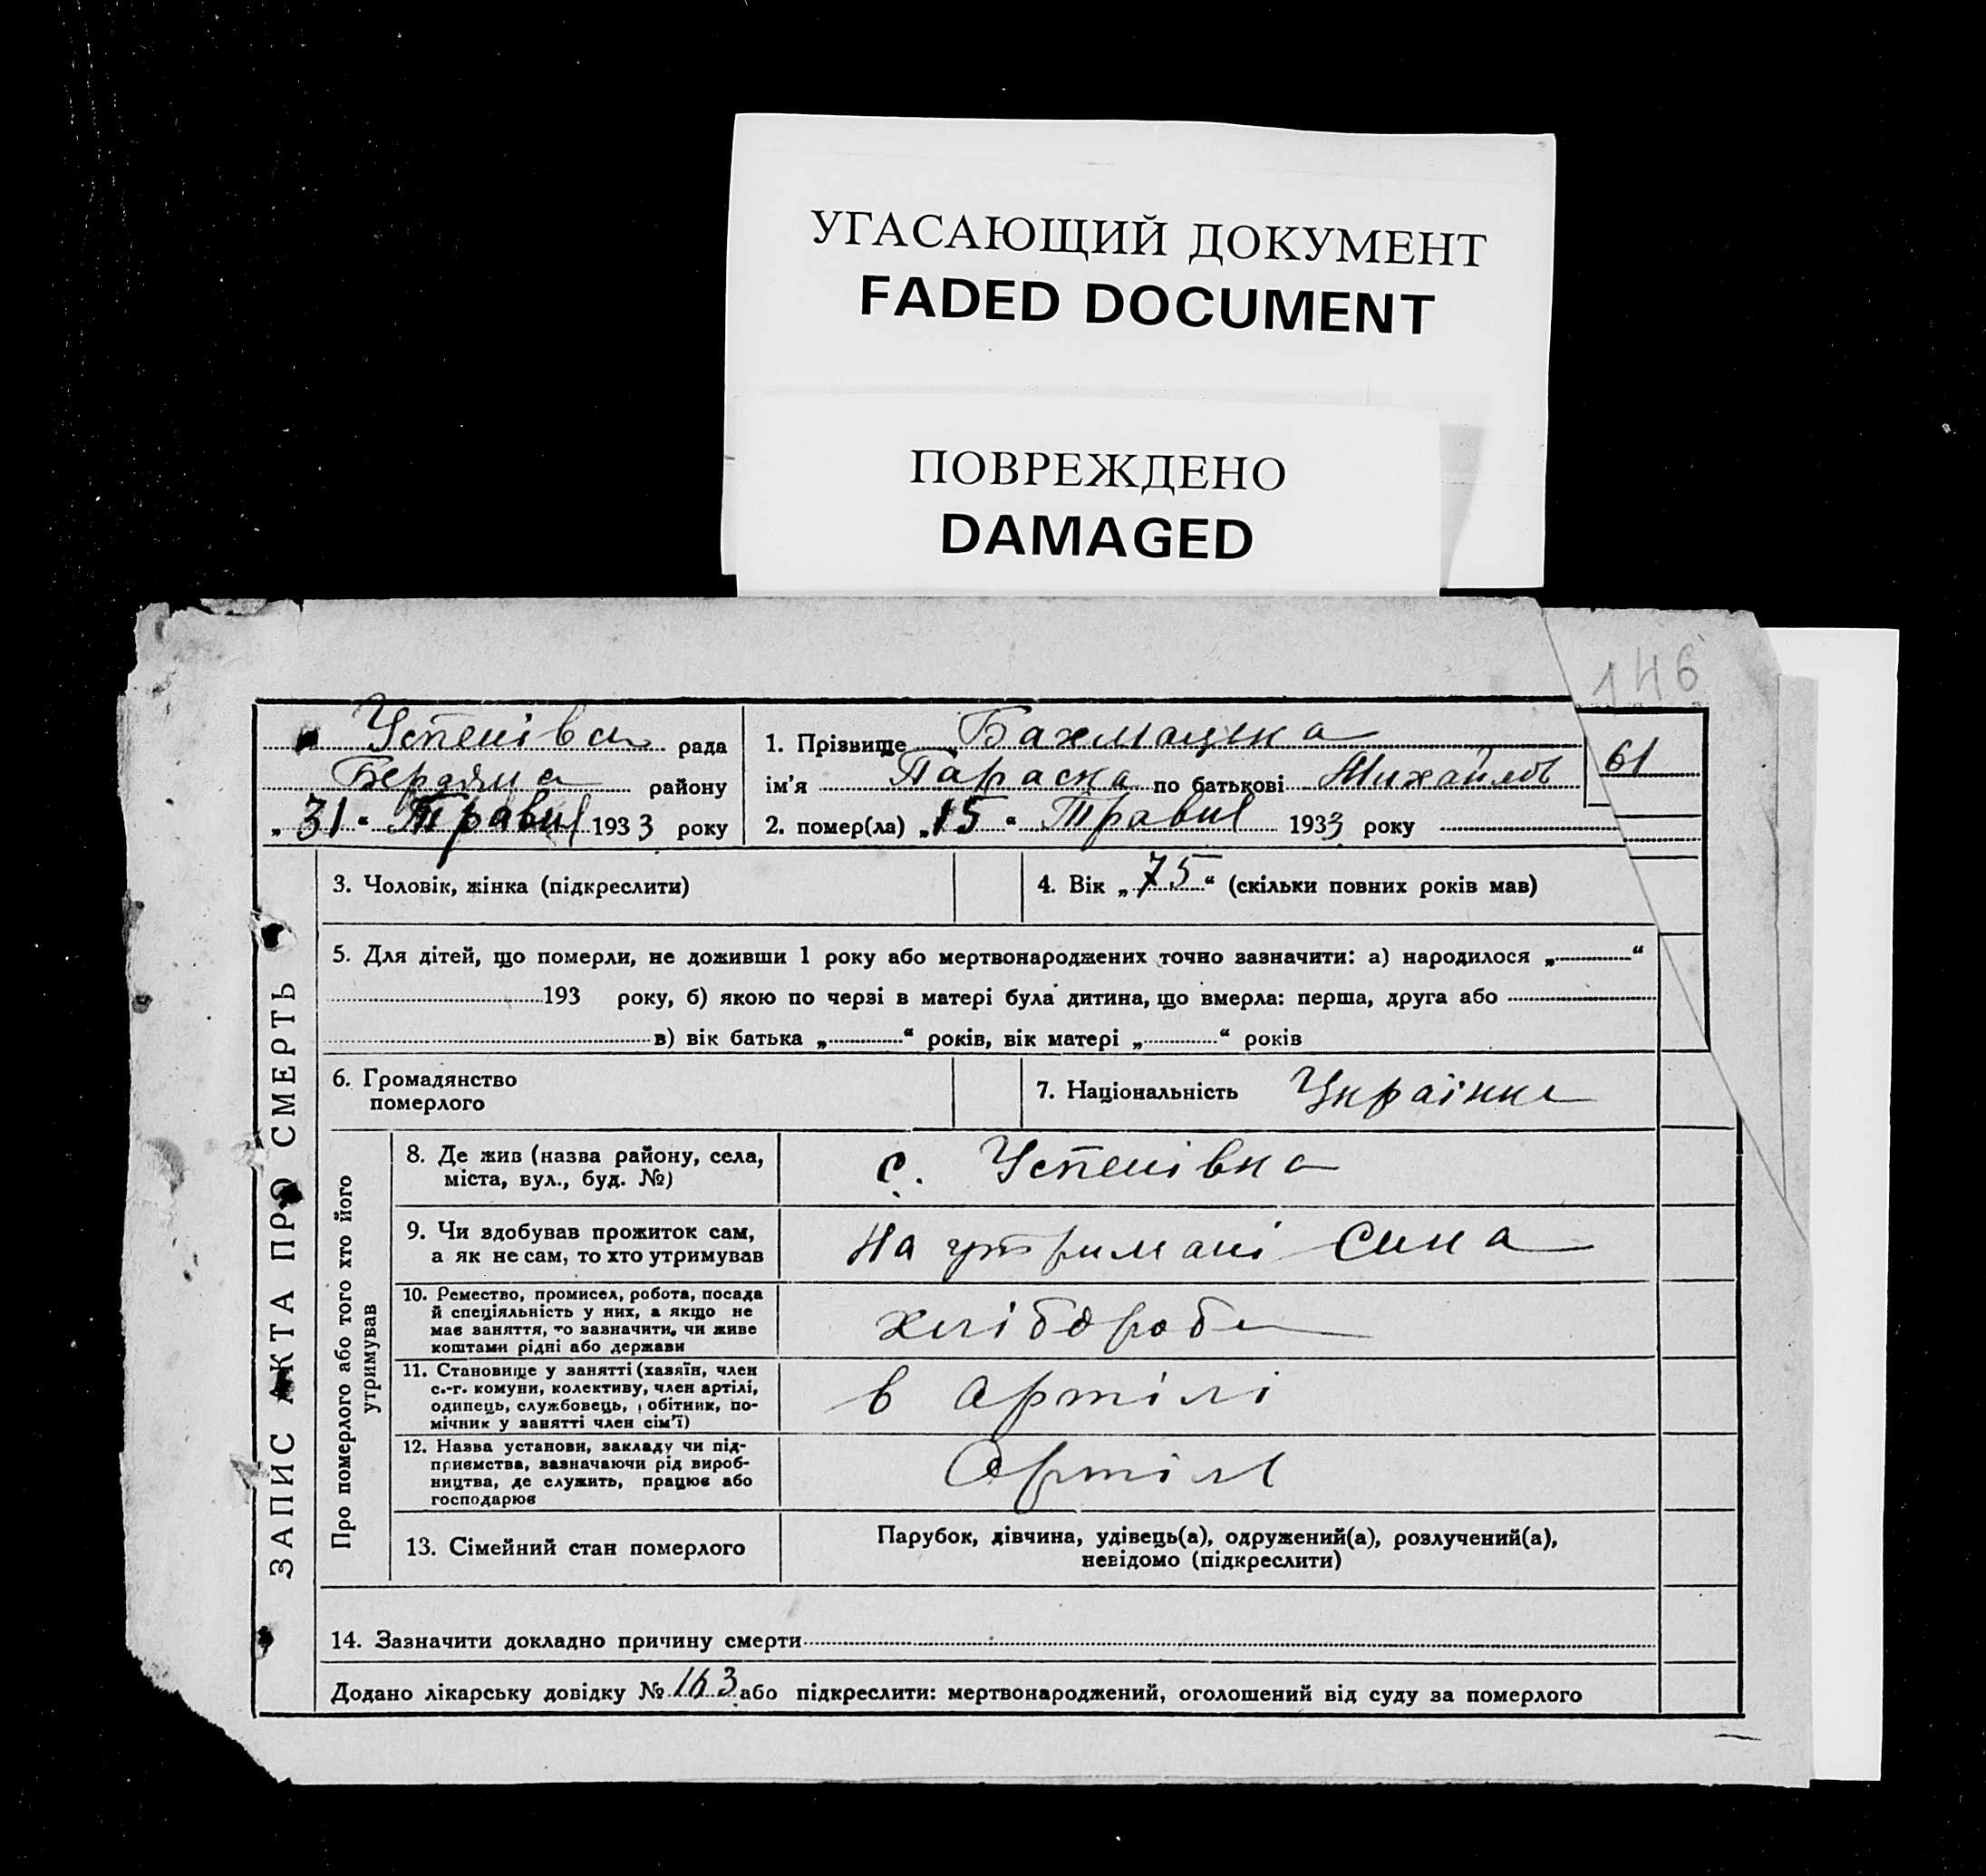 УГАСАЮЩИЙ ДОКУМЕНТ
FADED DOCUMENT
ПОВРЕЖДЕНО
DAMAGED
146
61
Успенівсь рада
району
„31“ Травня 1933 року
1. Прізвище Бахмацька
ім'я Параска по батькові Михайлов
2. помер(ла) „15“ Травня 1933 року
3. Чоловік, жінка (підкреслити)
4. Вік „75“ (скільки повних років мав)
5. Для дітей, що померли, не доживши 1 року або мертвонароджених точно зазначити: а) народилося „ “
193 року, б) якою по черзі в матері була дитина, що вмерла: перша, друга або
в) вік батька „ “ років, вік матері „ “ років
6. Громадянство
померлого
7. Національність Українка
ЗАПИС АКТА ПРО СМЕРТЬ
Про померлого або того хто його
утримував
8. Де жив (назва району, села,
міста, вул., буд. №)
с. Успенівка
9. Чи здобував прожиток сам,
а як не сам, то хто утримував
На утримані сина
10. Ремество, промисел, робота, посада
й спеціяльність у них, а якщо не
має заняття, то зазначити, чи живе
коштами рідні або держави
хлібороб
11. Становище у занятті (хазяїн, член
с.-г. комуни, колективу, член артілі,
одинець, службовець, обітник, по-
мічник у занятті член сім'ї)
в артілі
12. Назва установи, закладу чи під-
приємства, зазначаючи рід вироб-
ництва, де служить, працює або
господарює
Артіль
13. Сімейний стан померлого
Парубок, дівчина, удівець(а), одружений(а), розлучений(а),
невідомо (підкреслити)
14. Зазначити докладно причину смерти
Додано лікарську довідку № 163 або підкреслити: мертвонароджений, оголошений від суду за померлого